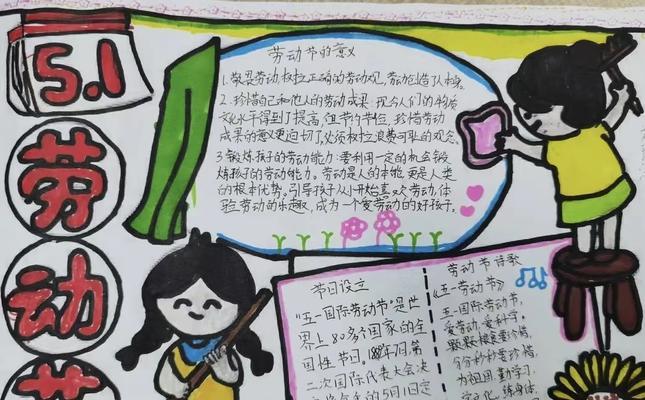 5.1
劳
动
节
劳动节的意义
1.敬畏劳动,树立正确的劳动观,劳动创造了人本身。
2.珍惜自己和他人的劳动成果.现今人们的物质
文化水平得到了提高,但节约节俭,珍惜劳动
成果的意义更迫切了,必须树立浪费可耻的观念。
3.锻炼孩子的劳动能力:要利用一定的机会锻
炼孩子的劳动能力。劳动是人的本能,更是人类
的根本优势。引导孩子从小开始喜欢劳动,体
验劳动的乐趣,成为一个爱劳动的好孩子。
节日设立
"五一国际劳动节"是世
界上80多个国家的全
国性节日,1889年7月,第
二次国际代表大会决
的5月1日定
劳动节诗歌
《五一劳动节》
五一国际劳动节,
爱劳动,爱科学。
颗颗粮食要珍惜,
分分秒秒要珍惜,
为祖国,勤学习,
学文化,练身体